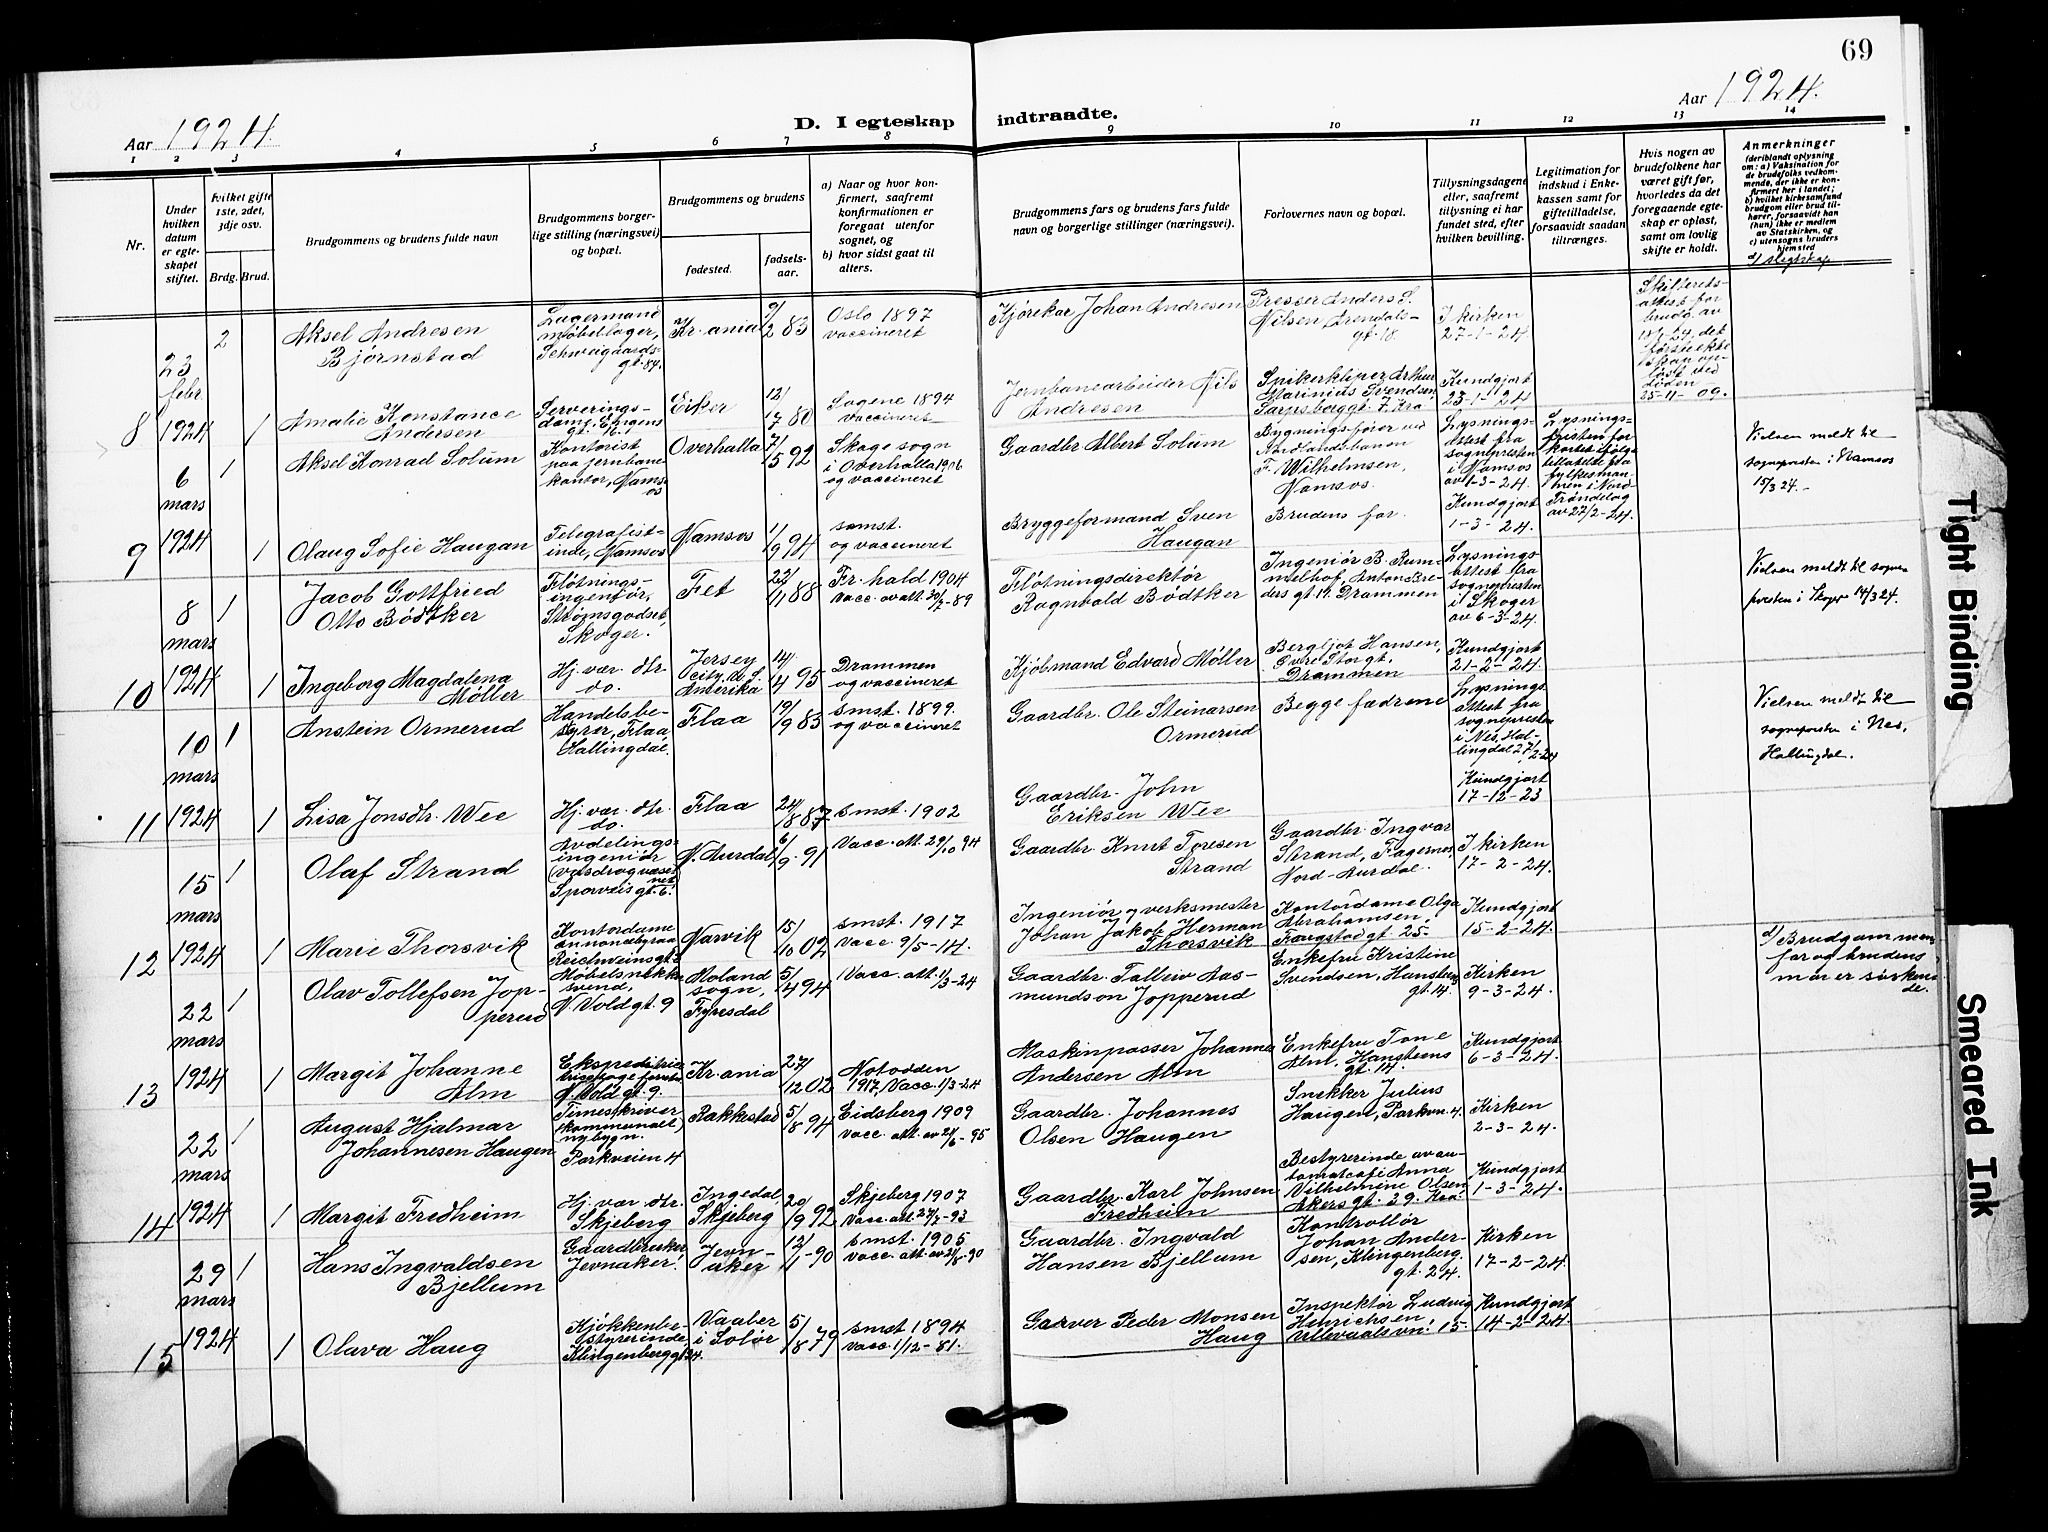 69
Aar 1924.
Aar 1924.
D. I egteskap
indtraadte.
1 2 3 4 5 6 7 8 9 10 11 12 13 14
Nr.
Under
hvilken
datum
er egte-
skapet
stiftet.
hvilket gifte
1ste, 2det,
3dje osv.
Brdg.
Brud.
Brudgommens og brudens fulde navn
Brudgommens borger-
lige stilling (næringsvei)
og bopæl.
Brudgommens og brudens
fødested.
fødsels-
aar.
a) Naar og hvor kon-
firmert, saafremt
konfirmationen er
foregaat utenfor
sognet, og
b) hvor sidst gaat til
alters.
Brudgommens fars og brudens fars fulde
navn og borgerlige stillinger (næringsvei).
Forlovernes navn og bopæl.
Tillysningsdagene
eller, saafremt
tillysning ei har
fundet sted, efter
hvilken bevilling.
Legitimation for
indskud i Enke-
kassen samt for
giftetilladelse,
forsaavidt saadan
tiltrænges.
Hvis nogen av
brudefolkene har
været gift før,
hvorledes da det
foregaaende egte-
skap er opløst,
samt om lovlig
skifte er holdt.
Anmerkninger
(deriblandt oplysning
om: a) Vaksination for
de brudefolks vedkom-
mende, der ikke er kon-
firmert her i landet;
b) hvilket kirkesamfund
brudgom eller brud til-
hører, forsaavidt han
(hun) ikke er medlem
av Statskirken, og
c) utensogns bruders
hjemsted
d) slegtskap
8
23
febr.
1924
2
Aksel Andresen
Bjørnstad
Lagermand
møbellager,
Schweigaards-
gt. 84.
Kr.ania
9/2 83
Oslo 1897
vaccineret
Kjørekar Johan Andresen
Presser Anders S.
Nilsen, Arendals-
gt. 18.
I kirken
27-1-24.
Skifterets-
attest for
bruda av
18/1-24, det
første ekte
skap op-
løst ved
døden
25-11-09.
1
Amalie Konstance
Andersen
Serverings-
dame,
Eiker
12/17 80
Sagene 1894
vaccineret
Jernbanearbeider Nils
Andresen
Spikerklipper Arthur
Marinius Svendsen
Sarpsborggt. 7. Kra
Kundgjort
23-1-24
9
6
mars
1924
1
Aksel Konrad Solum
Kontorist
paa jernbane
kontor, Nams-
os
Overhalla
7/5 92
Skage sogn
i Overhalla 1906
og vaccineret
Gaardbr. Albert Solum
Bygningsfører ved
Nordlandsbanen
F. Wilhelmsen,
Namsos.
Lysnings-
attest fra
sognepresten
i Namsos
av 1-3-24.
Lysnings-
fristen for-
kortet ifølge
tillatelse fra
fylkesman-
nen i Nord-
Trøndelag
av 27/2-24.
Vielsen meldt til
sognepresten i Namsos
15/3 24.-
1
Olaug Sofie Haugan
Telegrafist-
inde, Namsos
Namsos
1/9 94
smst.
og vaccineret
Bryggeformand Sven
Haugan
Brudens far
Kundgjort
1-3-24.
10
8
mars
1924
1
Jacob Gottfried
Otto Bödtker
Fløtnings-
ingeniør,
Strømsgodset,
Skoger.
Fet
22/11 88
Fr.hald 1904
Vacc. ov att. 30/7-89
Fløtningsdirektør
Ragnvald Bødtker
Ingeniør B. Rum-
melhof, Anton Bre-
ders gt. 19. Drammen
Lysnings-
attest fra
sognepresten
i Skoger
av 6-3-24.
Vielsen meldt til sogne-
presten i Skoger 14/3 24.
1
Ingeborg Magdalena
Møller
Hj. vær. dtr.
do.
Jersey
City, U. S.
Amerika
14/4 95
Drammen
og vaccineret
Kjøbmand Edvard Møller
Bergljot Hansen,
Øvre Storgt,
Drammen
Kundgjort
21-2-24.
11
10
mars
1924
1
Anstein Ormerud
Handelsbe-
styrer, Flaa,
Hallingdal.
Flaa
19/9 83
smst. 1899.
og vaccineret
Gaardbr. Ole Steinarsen
Ormerud
Begge fædrene
Lysnings-
attest fra
sognepresten
i Nes, Hal-
lingdal 27/2-24
Vielsen meldt til
sognepresten i Nes,
Hallingdal.
1
Lisa Jonsdtr. Wee
Hj. vær. dtr.
do.
Flaa
24/8 87
smst. 1902
Gaardbr. John
Eriksen Wee
Kundgjort
17-12-23
12
15
mars
1924
1
Olaf Strand
Avdelings-
ingeniør
(vasdragsvæse-
net)
Sporveisgt. 6.
N. Aurdal
6/9-91
Vacc. att. 29/10 94
Gaardbr. Knut Toresen
Strand
Gaardbr. Ingvar
Strand, Fagernes,
Nord-Aurdal.
I kirken
17-2-24.
1
Marie Thorsvik
Kontordame
annoncebyraa
Reichweinsgt.
Narvik
15/10 02
smst. 1917
Vacc. 9/5-14.
Ingeniør og verksmester
Johan Jakob Herman
Thorsvik
Kontordame Olga
Abrahamsen,
Fougstad gt. 25.
Kundgjort
15-2-24.
13
22
mars
1924
1
Olav Tollefsen Jop-
perud
Møbelsnekker
svend,
N. Voldgt. 9
Moland
sogn,
Fyresdal
5/4 94
Vacc. att. 1/3-24
Gaardbr. Talleiv Aas-
mundson Jopperud
Enkefru Kristine
Svendsen, Hansteens
gt. 14.
Kirken
9-3-24.
d) Brudgommens
far og brudens
mor er søsken-
de.
1
Margit Johanne
Alm
N. Voldgt. 9.
Kr.ania
27/12 02
Notodden
1917, Vacc. 1/3-24
Maskinpasser Johannes
Andersen Alm
Enkefru Tone
Alm, Hansteens
gt. 14.
Kundgjort
6-3-24.
14
22
mars
1924
1
August Hjalmar
Johannesen Haugen
Timeskriver
(kommunalt
nybygn.
Parkveien 4
Rakkestad
5/8 94
Eidsberg 1909
vacc. att. av 21/6-95
Gaardbr. Johannes
Olsen Haugen
Snekker Julius
Haugen, Parkvn. 4.
Kirken
2-3-24.
1
Margit Fredheim
Hj. vær. dtr.
Skjeberg
Ingedal
Skjeberg
20/9 92
Skjeberg 1907
Vacc. att. 27/7-93
Gaardbr. Karl Johnsen
Fredheim
Bestyrerinde av au-
tomatcafé Anna
Vilhelmine Olsen
Akersgt. 39. Kra.
Kundgjort
1-3-24.
15
29
mars
1924
1
Hans Ingvaldsen
Bjellum
Gaardbruker
Jevnaker.
Jevn-
aker
12/1-90
smst. 1905
vacc. att. av 21/8-90
Gaardbr. Ingvald
Hansen Bjellum
Kontrollør
Johan Ander-
sen, Klingenberg.
gt. 24.
Kirken
17-2-24.
1
Olava Haug
Kjøkkenbe-
styrerinde
Klingenberggt. 24.
Vaaler
i Solør
5/8 79
smst 1894
Vacc. 1/12-81.
Garver Peder Monsen
Haug
Inspektør Ludvig
Hinrichsen
Ullevaalsvn. 15.
Kundgjort
14-2-24.
Tight Binding
Smeared Ink